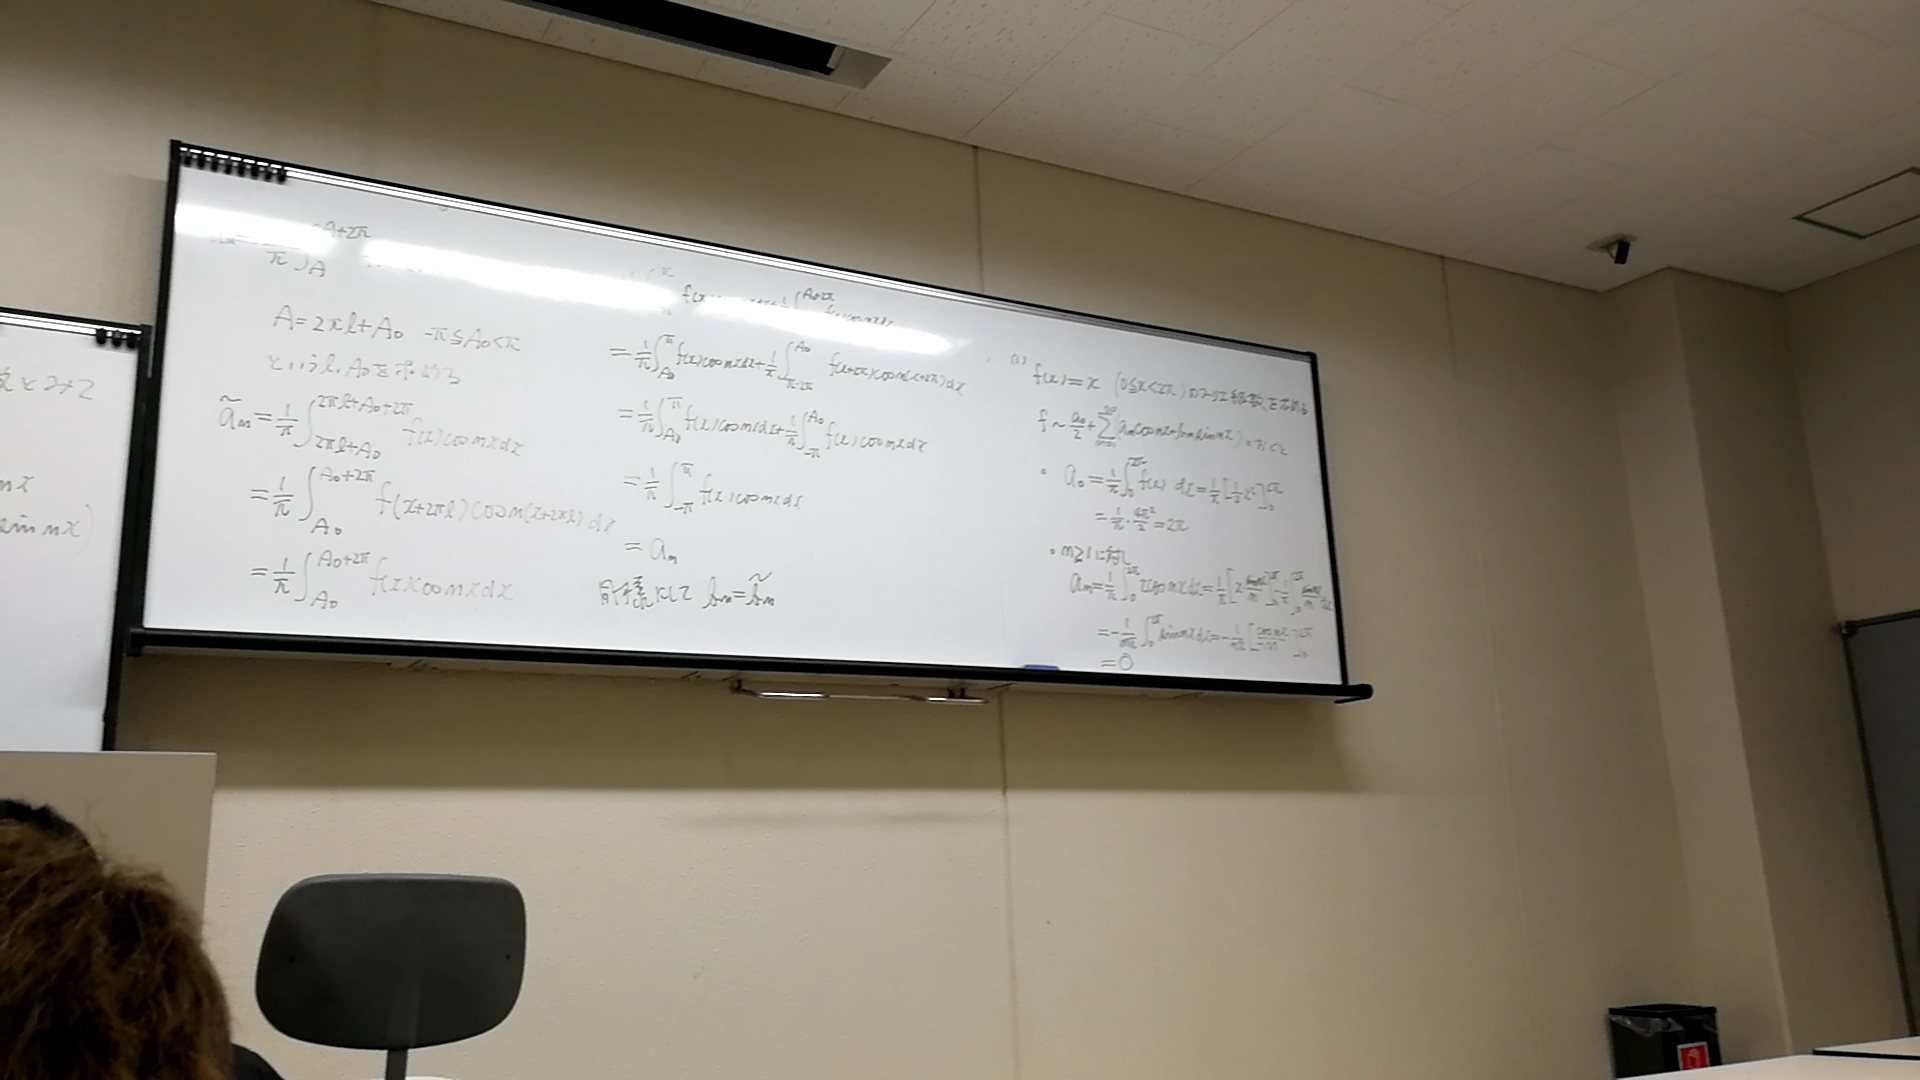 nx
sin nx)
A+2π
1/π ∫_A
A=2πl+A₀ -π≦A₀<π
という l, A₀ を求める
ã_n = 1/π ∫_{2πl+A₀}^{2πl+A₀+2π} f(x)cos nx dx
= 1/π ∫_{A₀}^{A₀+2π} f(x+2πl)cos n(x+2πl) dx
= 1/π ∫_{A₀}^{A₀+2π} f(x)cos nx dx
= 1/π ∫_{A₀}^{π} f(x)cos nx dx + 1/π ∫_{π-2π}^{A₀} f(x+2π)cos n(x+2π) dx
= 1/π ∫_{A₀}^{π} f(x)cos nx dx + 1/π ∫_{-π}^{A₀} f(x)cos nx dx
= 1/π ∫_{-π}^{π} f(x)cos nx dx
= a_n
同様にして b_n = b̃_n
(1)
f(x)=x (0≦x<2π)のフーリエ級数を求める
f ~ a₀/2 + Σ_{n=1}^{∞} (a_n cos nx + b_n sin nx) とおくと
• a₀ = 1/π ∫_0^{2π} f(x) dx = 1/π [1/2 x²]_0^{2π}
= 1/π · 4π²/2 = 2π
• n≧1に対し
a_n = 1/π ∫_0^{2π} x cos nx dx = 1/π [x · sin nx/n]_0^{2π} - 1/π ∫_0^{2π} sin nx/n dx
= -1/nπ ∫_0^{2π} sin nx dx = -1/nπ [cos nx/-n]_0^{2π}
= 0